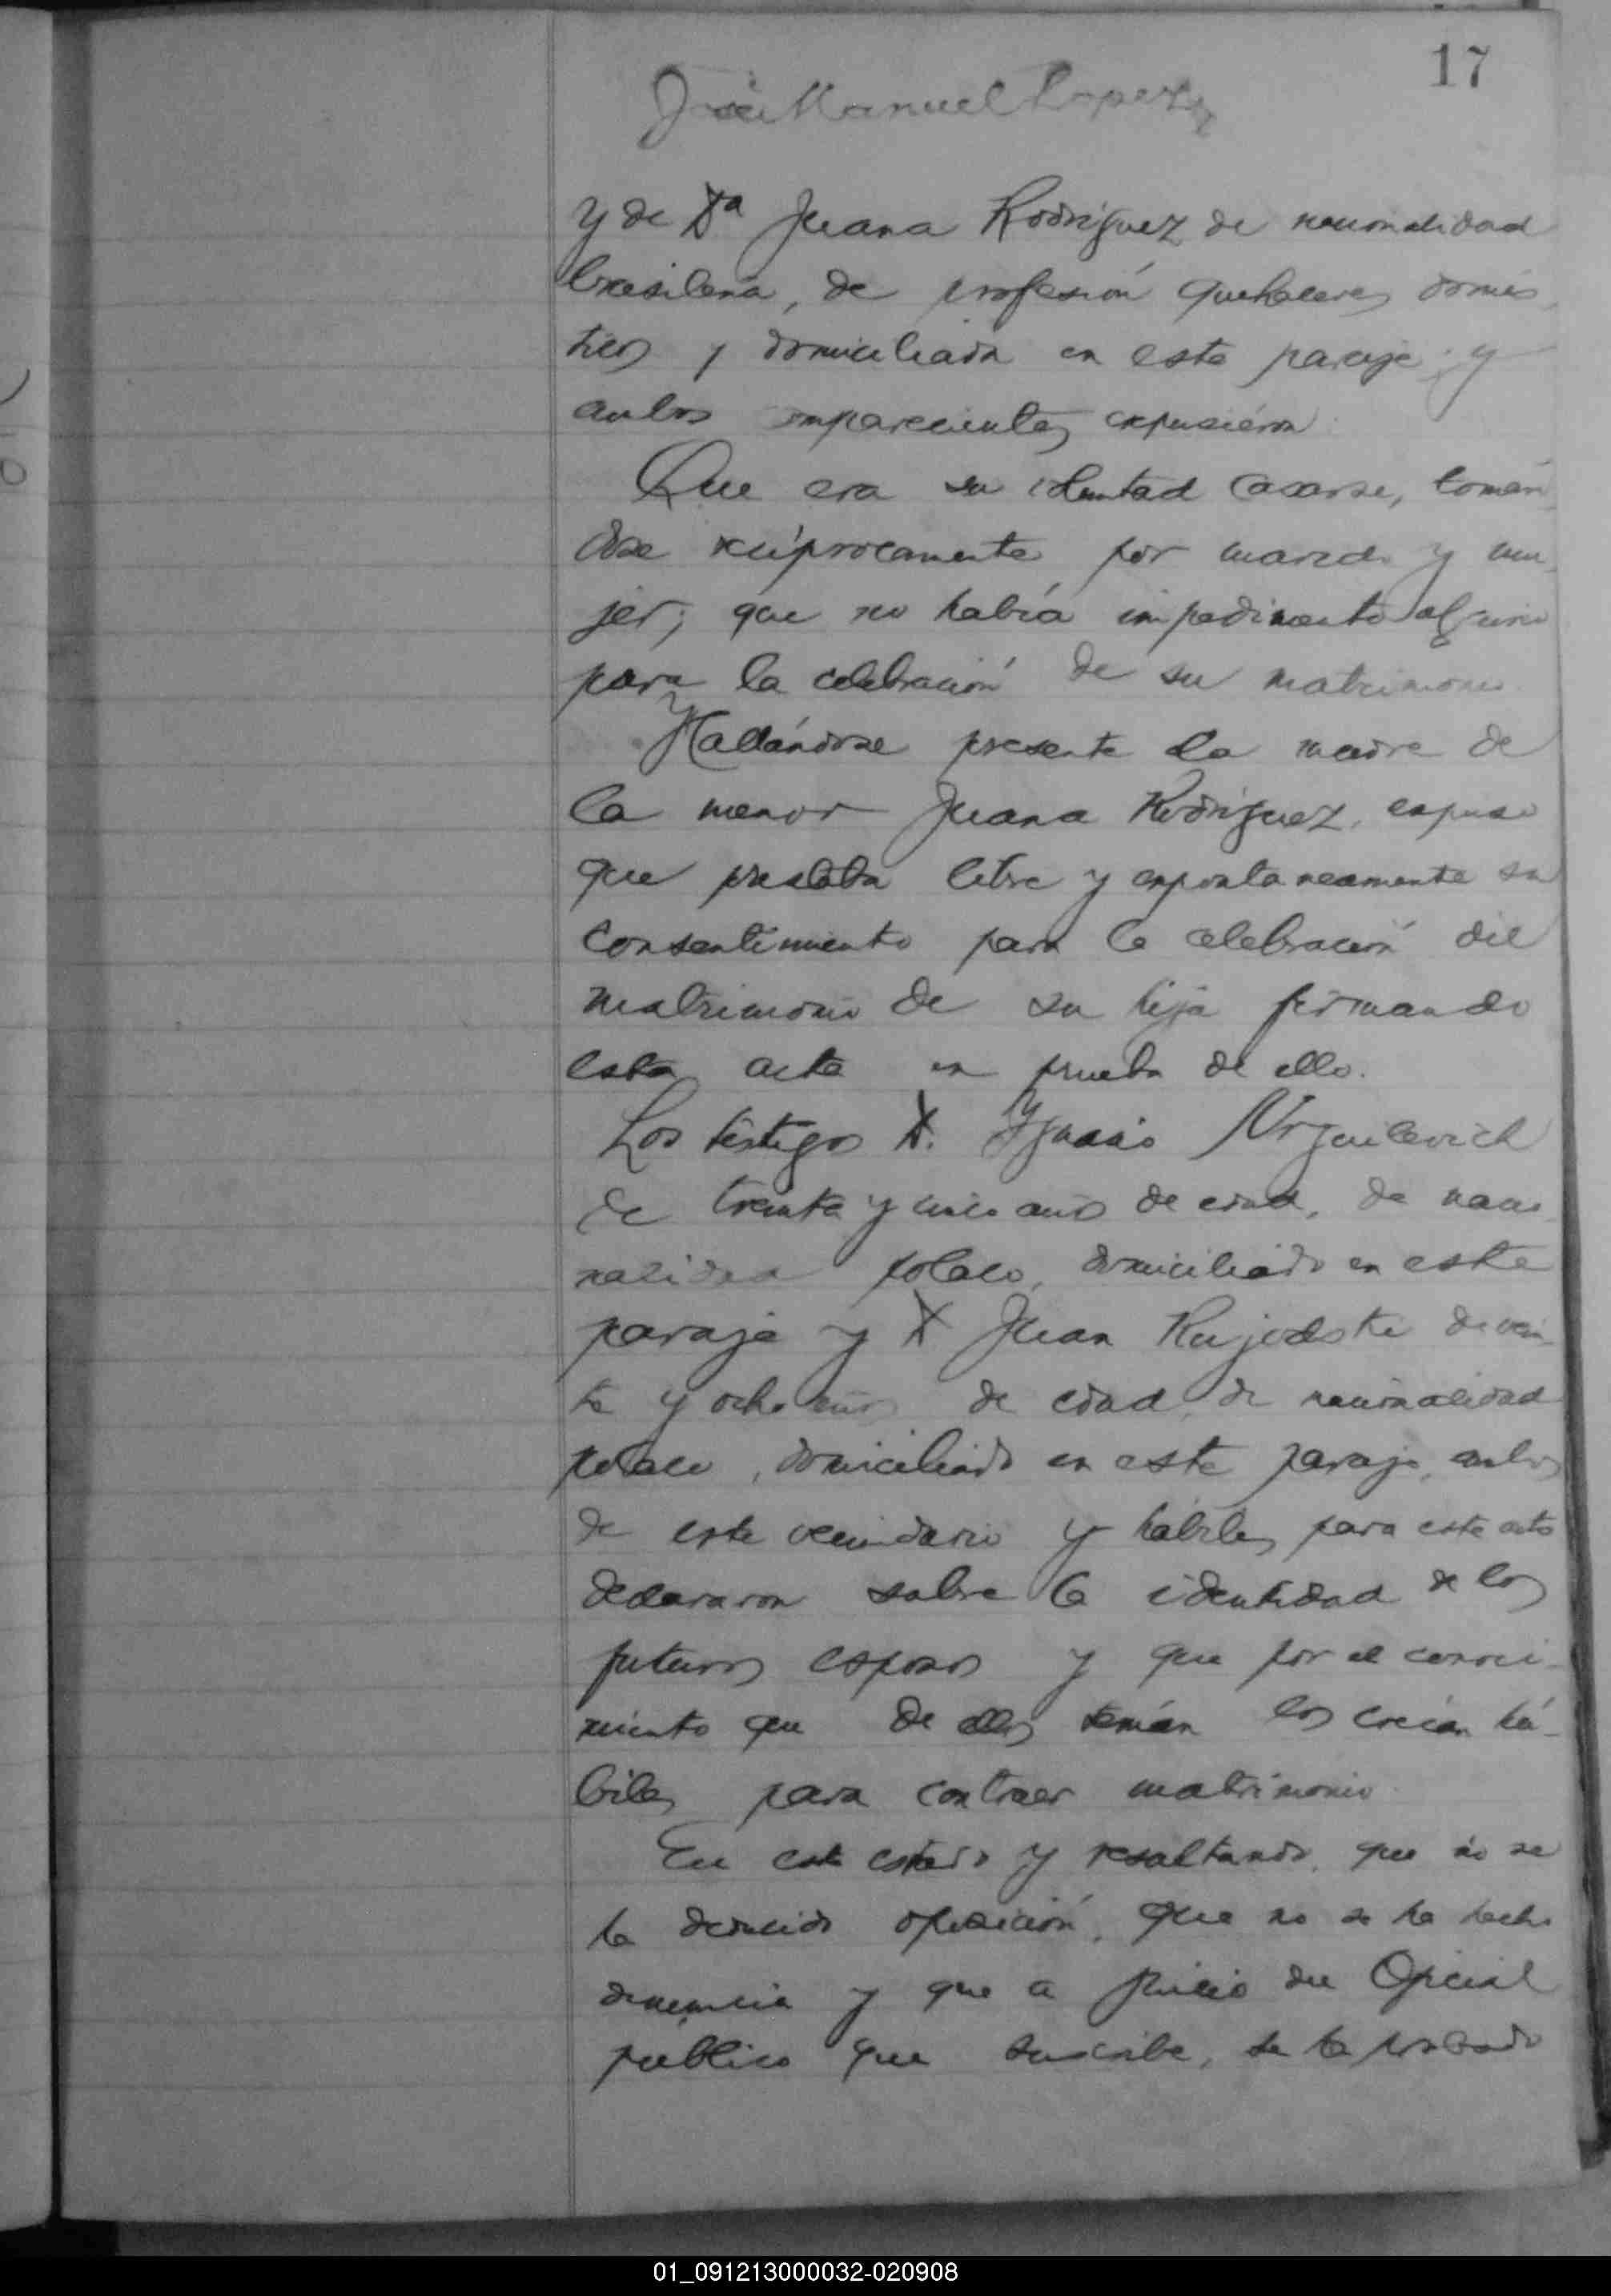 17
José Manuel Lopez
y de Dª Juana Rodríguez de nacionalidad
brasilena, de profesión quehaceres domés
ticos y domiciliada en este paraje; y
ambos comparecientes expusieron
Que era su voluntad casarse, tomán
dose recíprocamente por marido y mu
jer; que no había impedimento alguno
para la celebración de su matrimonio
Hallándose presente la madre de
la menor Juana Rodríguez, expuso
que prestaba libre y expontaneamente su
consentimiento para la celebración del
matrimonio de su hija firmando
esta acta en prueba de ello.
Los testigos D. Ygnacio
de treinta y cinco años de edad, de nacio
nalidad polaco, domiciliado en este
paraje y D Juan de vein
te y ocho años de edad, de nacionalidad
polaco, domiciliado en este paraje, ambos
de este vecindario y hábiles para este acto
declararon sobre la identidad de los
futuros esposos y que por el conoci-
miento que de ellos tenían los creían há-
biles para contraer matrimonio
En este estado y resultando que no se
ha deducido oposición, que no se ha hecho
denuncia y que a juicio del Oficial
público que suscribe, se ha probado
01_091213000032-020908